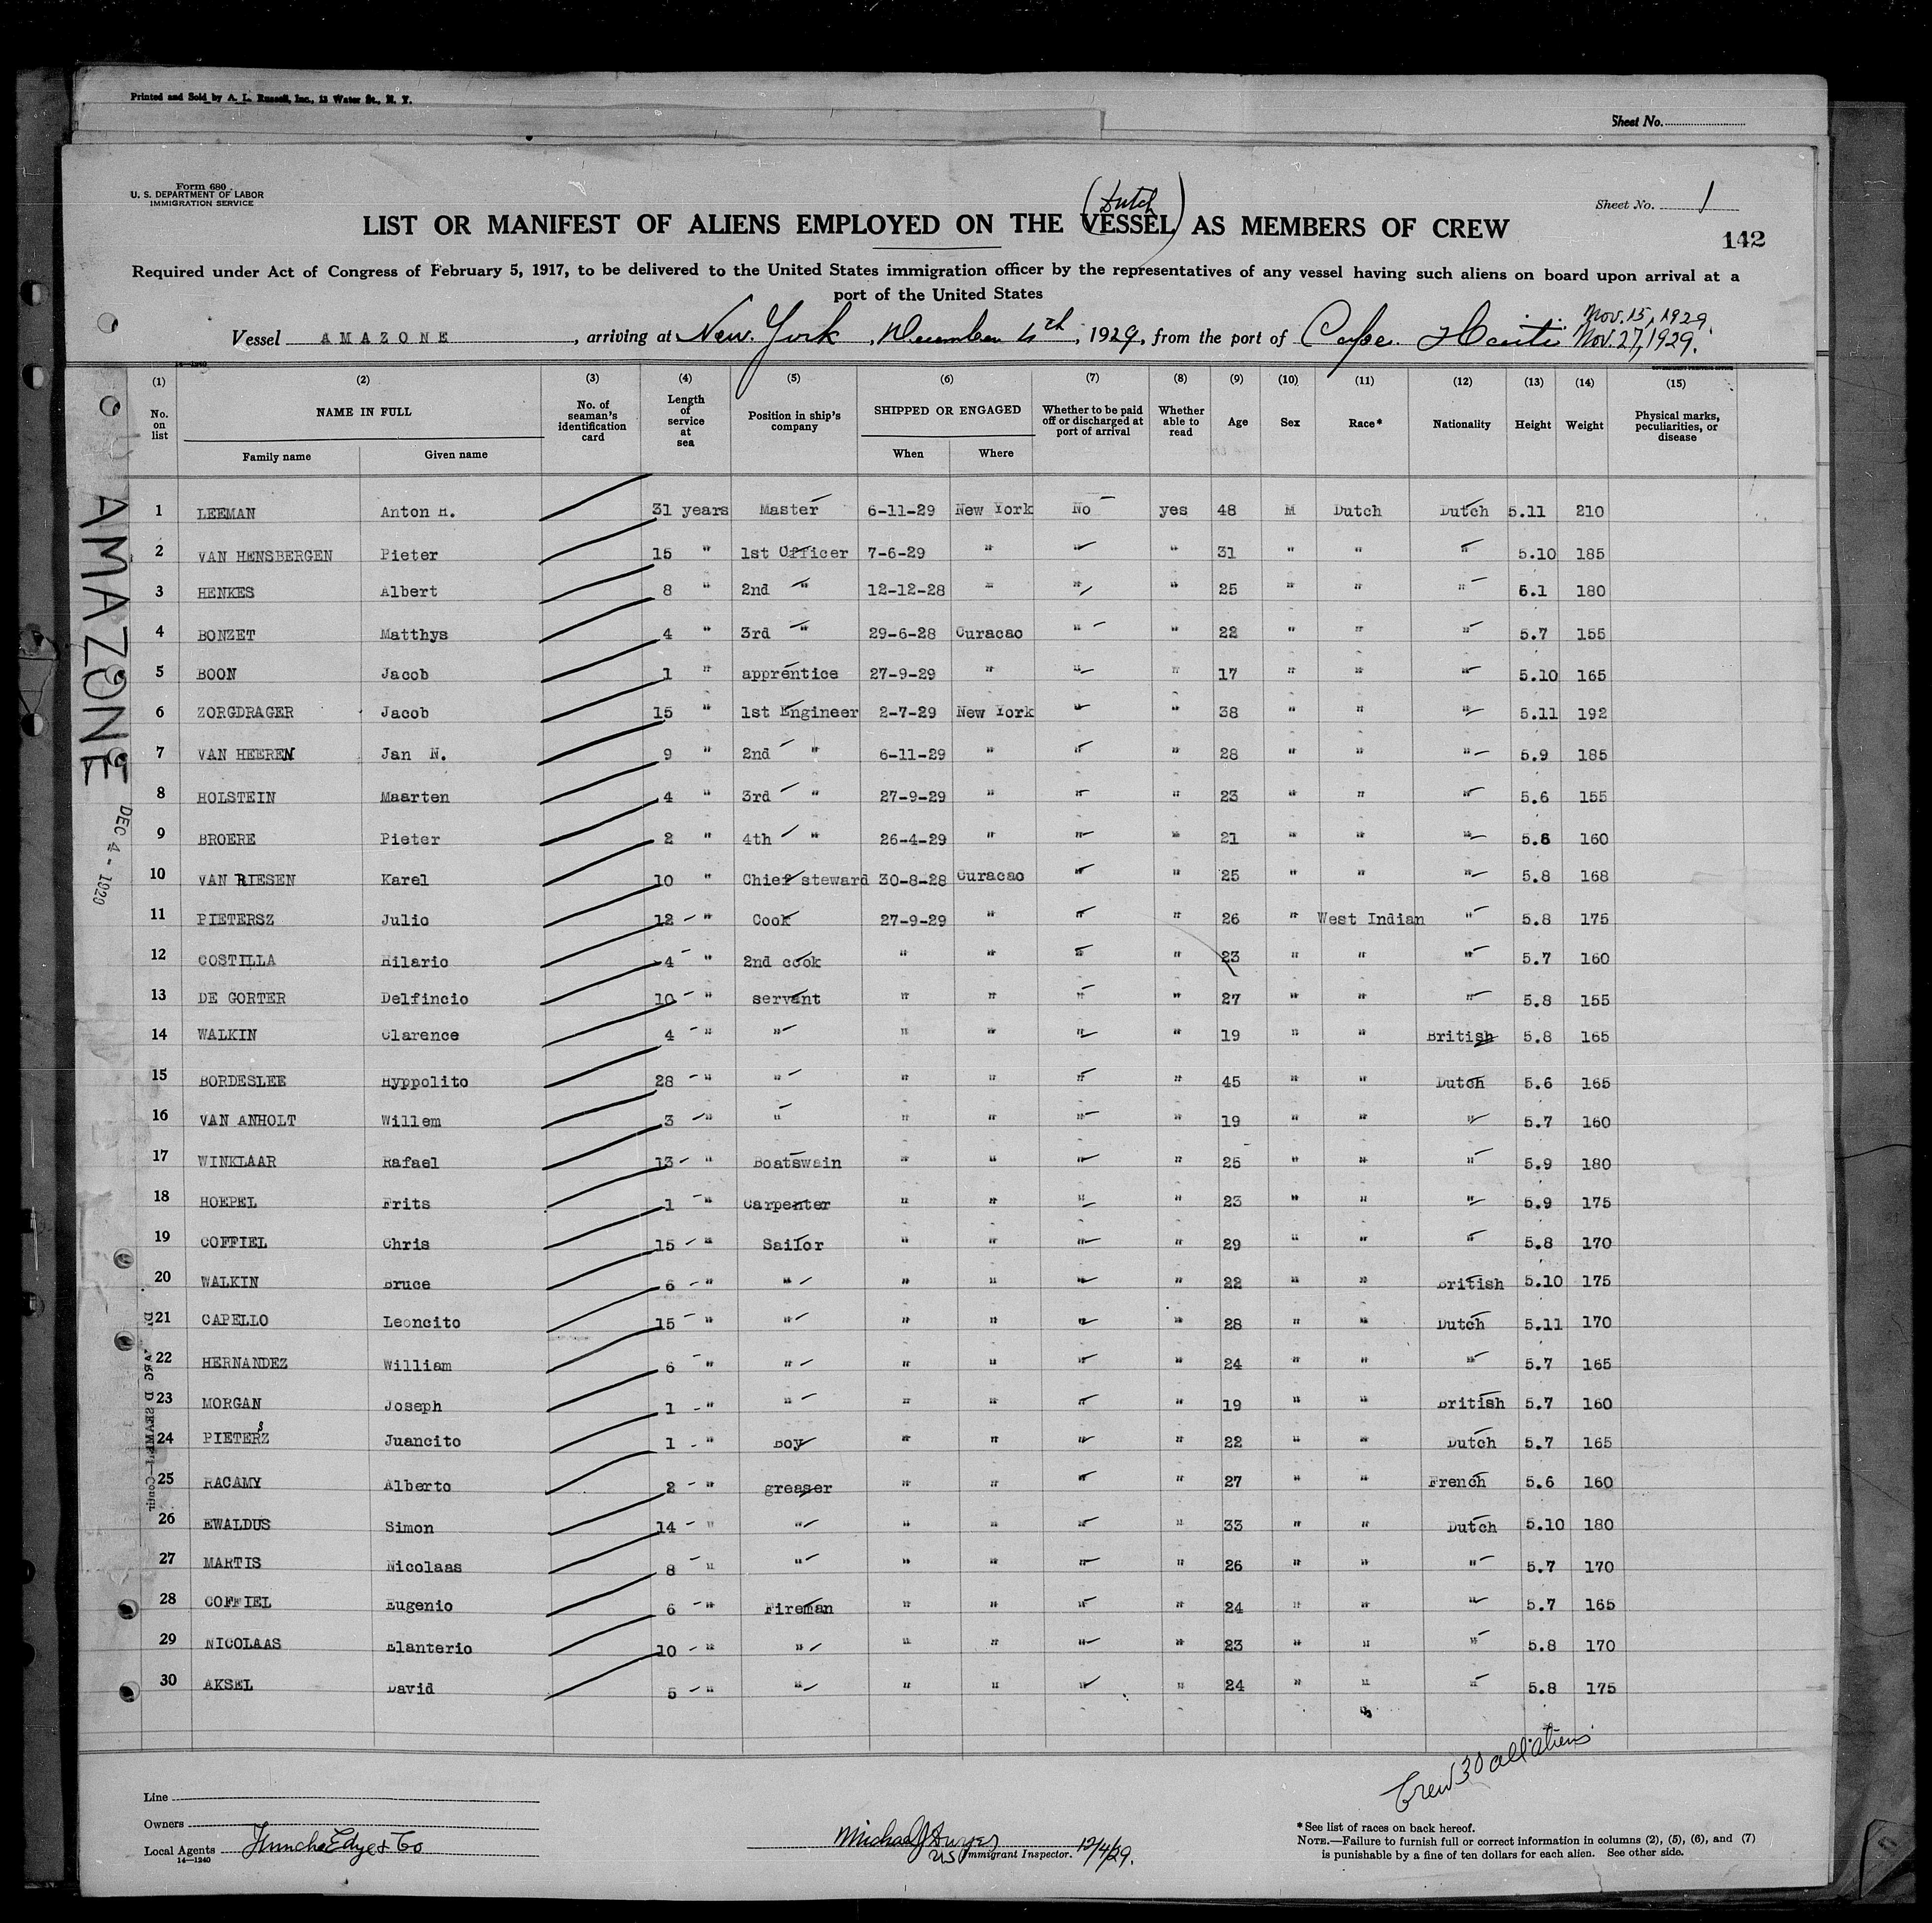 Printed and Sold by A. L. Russell, Inc., 13 Water St., N. Y.
Sheet No.
Form 680
U. S. DEPARTMENT OF LABOR
IMMIGRATION SERVICE
Sheet No. 1
(Dutch)
LIST OR MANIFEST OF ALIENS EMPLOYED ON THE VESSEL AS MEMBERS OF CREW
142
Required under Act of Congress of February 5, 1917, to be delivered to the United States immigration officer by the representatives of any vessel having such aliens on board upon arrival at a
port of the United States
Nov. 15, 1929.
Vessel AMAZONE, arriving at New York, December 4th, 1929, from the port of Cape Haiti Nov. 27, 1929.
14—1240
(1) (2) (3) (4) (5) (6) (7) (8) (9) (10) (11) (12) (13) (14) (15)
No. on list NAME IN FULL No. of seaman's identification card Length of service at sea Position in ship's company SHIPPED OR ENGAGED Whether to be paid off or discharged at port of arrival Whether able to read Age Sex Race* Nationality Height Weight Physical marks, peculiarities, or disease
Family name Given name When Where
1 LEEMAN Anton H. 31 years Master 6-11-29 New York No yes 48 M Dutch Dutch 5.11 210
2 VAN HENSBERGEN Pieter 15 " 1st Officer 7-6-29 " " " 31 " " " 5.10 185
3 HENKES Albert 8 " 2nd " 12-12-28 " " " 25 " " " 6.1 180
4 BONZET Matthys 4 " 3rd " 29-6-28 Curacao " " 22 " " " 5.7 155
5 BOON Jacob 1 " apprentice 27-9-29 " " " 17 " " " 5.10 165
6 ZORGDRAGER Jacob 15 " 1st Engineer 2-7-29 New York " " 38 " " " 5.11 192
7 VAN HEEREN Jan N. 9 " 2nd " 6-11-29 " " " 28 " " " 5.9 185
8 HOLSTEIN Maarten 4 " 3rd " 27-9-29 " " " 23 " " " 5.6 155
9 BROERE Pieter 2 " 4th " 26-4-29 " " " 21 " " " 5.6 160
10 VAN RIESEN Karel 10 " Chief steward 30-8-28 Curacao " " 25 " " " 5.8 168
11 PIETERSZ Julio 12 " Cook 27-9-29 " " " 26 " West Indian " 5.8 175
12 COSTILLA Hilario 4 " 2nd cook " " " " 23 " " " 5.7 160
13 DE GORTER Delfincio 10 " servant " " " " 27 " " " 5.8 155
14 WALKIN Clarence 4 " " " " " " 19 " " British 5.8 165
15 BORDESLEE Hyppolito 28 " " " " " " 45 " " Dutch 5.6 165
16 VAN ANHOLT Willem 3 " " " " " " 19 " " " 5.7 160
17 WINKLAAR Rafael 13 " Boatswain " " " " 25 " " " 5.9 180
18 HOEPEL Frits 1 " Carpenter " " " " 23 " " " 5.9 175
19 COFFIEL Chris 15 " Sailor " " " " 29 " " " 5.8 170
20 WALKIN Bruce 6 " " " " " " 22 " " British 5.10 175
21 CAPELLO Leoncito 15 " " " " " " 28 " " Dutch 5.11 170
22 HERNANDEZ William 6 " " " " " " 24 " " " 5.7 165
23 MORGAN Joseph 1 " " " " " " 19 " " British 5.7 160
24 PIETERSZ Juancito 1 " Boy " " " " 22 " " Dutch 5.7 165
25 RACAMY Alberto 2 " greaser " " " " 27 " " French 5.6 160
26 EWALDUS Simon 14 " " " " " " 33 " " Dutch 5.10 180
27 MARTIS Nicolaas 8 " " " " " " 26 " " " 5.7 170
28 COFFIEL Eugenio 6 " Fireman " " " " 24 " " " 5.7 165
29 NICOLAAS Elanterio 10 " " " " " " 23 " " " 5.8 170
30 AKSEL David 5 " " " " " " 24 " " " 5.8 175
AMAZONE
DEC 4 - 1929
Crew 30 all aliens
Line
Owners
Local Agents Funch Edye & Co
14—1240
Michael J Dwyer
US Immigrant Inspector. 12/4/29.
*See list of races on back hereof.
NOTE.—Failure to furnish full or correct information in columns (2), (5), (6), and (7)
is punishable by a fine of ten dollars for each alien. See other side.